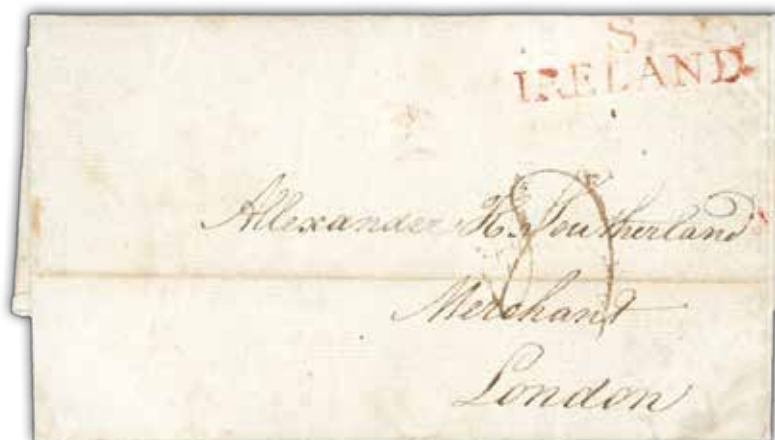 S.
IRELAND
Allexander H. Southerland
Merchant
London